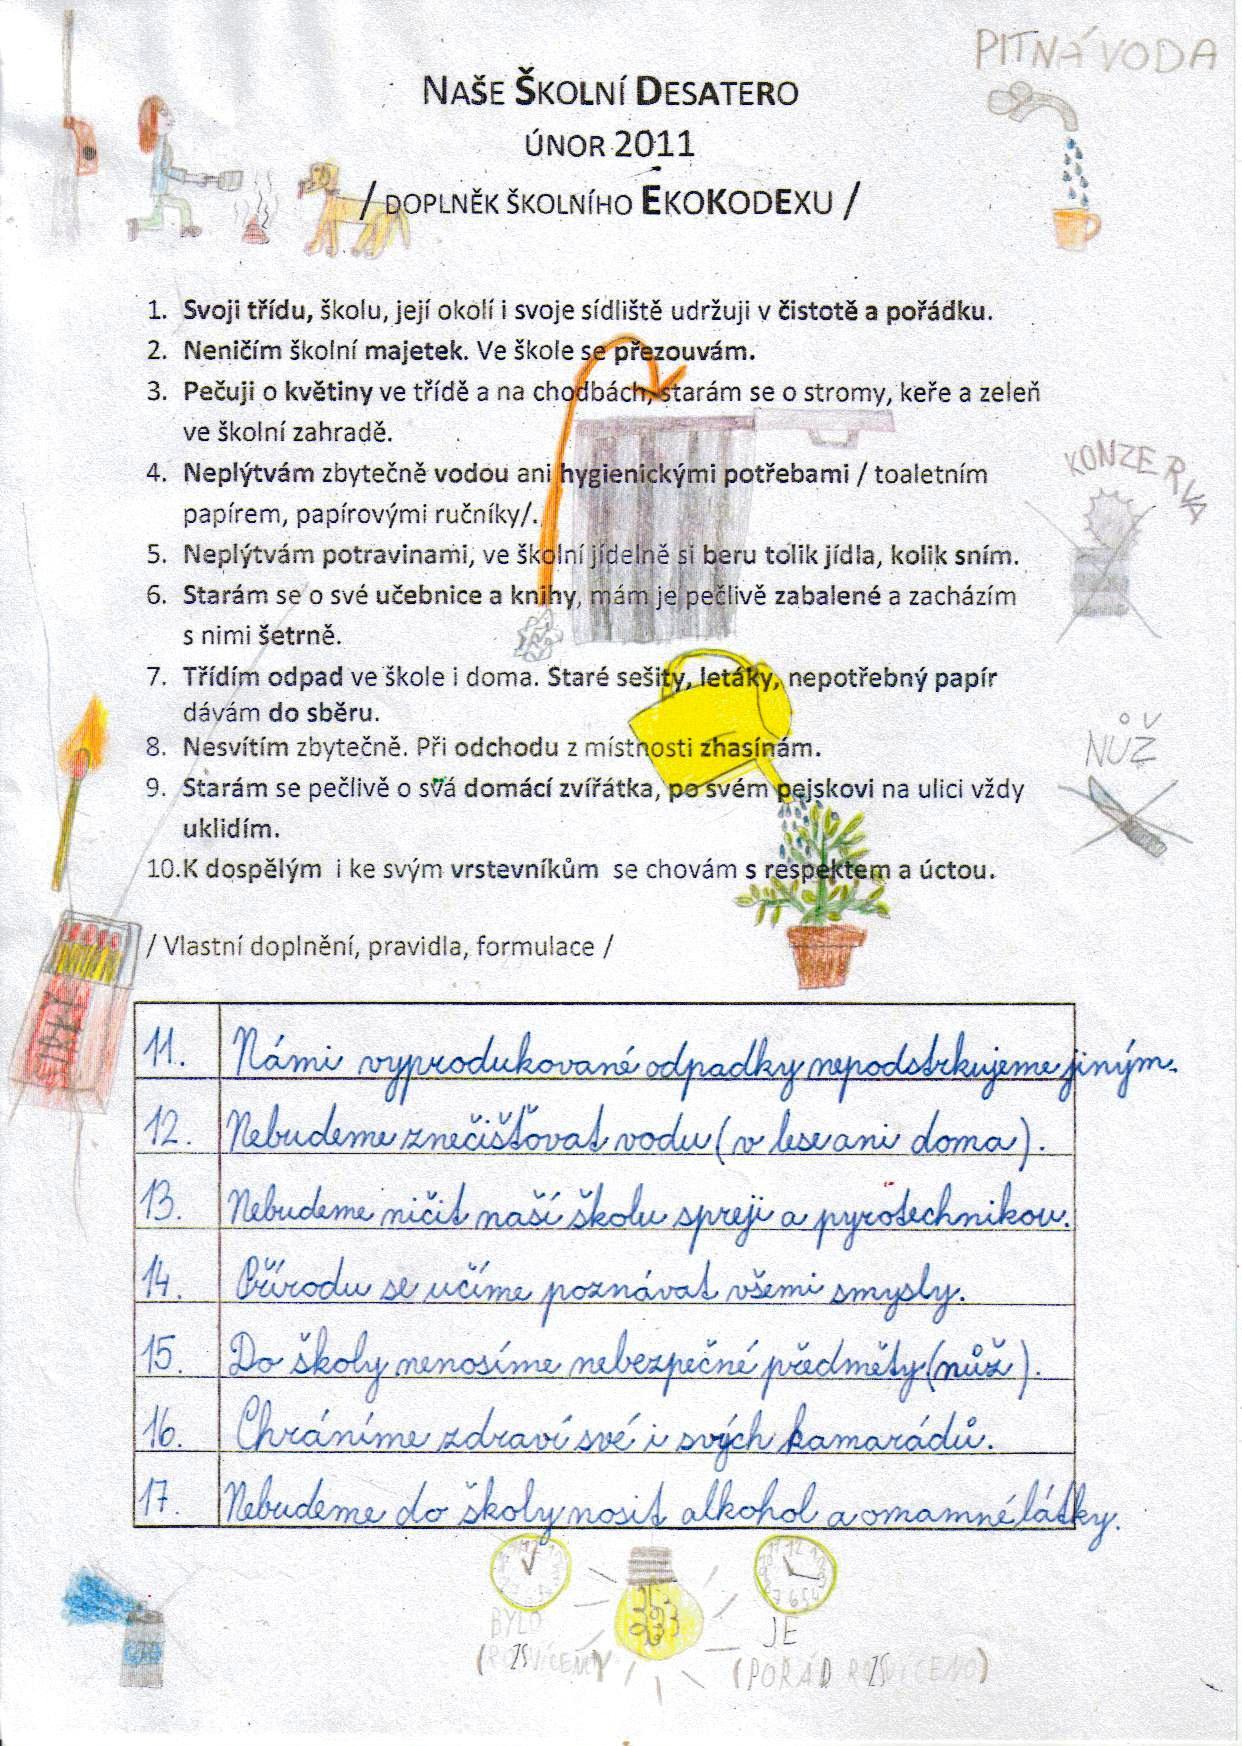 PITNÁ VODA
NAŠE ŠKOLNÍ DESATERO
ÚNOR 2011
/ DOPLNĚK ŠKOLNÍHO EKOKODEXU /
1. Svoji třídu, školu, její okolí i svoje sídliště udržuji v čistotě a pořádku.
2. Neničím školní majetek. Ve škole se přezouvám.
3. Pečuji o květiny ve třídě a na chodbách, starám se o stromy, keře a zeleň
ve školní zahradě.
KONZERVA
4. Neplýtvám zbytečně vodou ani hygienickými potřebami / toaletním
papírem, papírovými ručníky/.
5. Neplýtvám potravinami, ve školní jídelně si beru tolik jídla, kolik sním.
6. Starám se o své učebnice a knihy, mám je pečlivě zabalené a zacházím
s nimi šetrně.
7. Třídím odpad ve škole i doma. Staré sešity, letáky, nepotřebný papír
dávám do sběru.
NŮŽ
8. Nesvítím zbytečně. Při odchodu z místnosti zhasínám.
9. Starám se pečlivě o svá domácí zvířátka, po svém pejskovi na ulici vždy
uklidím.
10.K dospělým i ke svým vrstevníkům se chovám s respektem a úctou.
/ Vlastní doplnění, pravidla, formulace /
11. Námi vyprodukované odpadky nepodstrkujeme jiným.
12. Nebudeme znečišťovat vodu (v lese ani doma).
13. Nebudeme ničit naší školu spreji a pyrotechnikou.
14. Přírodu se učíme poznávat všemi smysly.
15. Do školy nenosíme nebezpečné předměty (nůž).
16. Chráníme zdraví své i svých kamarádů.
17. Nebudeme do školy nosit alkohol a omamné látky.
BYLO
JE
(POŘÁD ROZSVÍCENO)